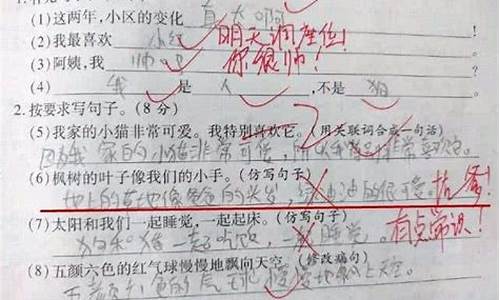 (1)这两年,小区的变化 真大啊
(2)我最喜欢 小红 明天调座位!
(3)阿姨,我 帅吧 你很帅!
(4) 我 是 人 ,不是 狗
2.按要求写句子。(8 分)
(5)我家的小猫非常可爱。我特别喜欢它。(用关联词合成一句话)
因为我家的小猫非常可爱,所以我 非常喜欢它。
(6)枫树的叶子像我们的小手。(仿写句子)
地上的草地像爸爸的头发,绿油油的很可爱。
(7)太阳和我们一起睡觉,一起起床。(仿写句子)
狗和猪一起吃饭,一起睡觉。 有点常识!
(8)五颜六色的红气球慢慢地飘向天空。(修改病句)
五颜六色的气球慢慢地飘上天空。